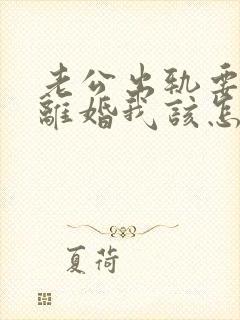 老公出轨要
離婚我该怎
夏荷